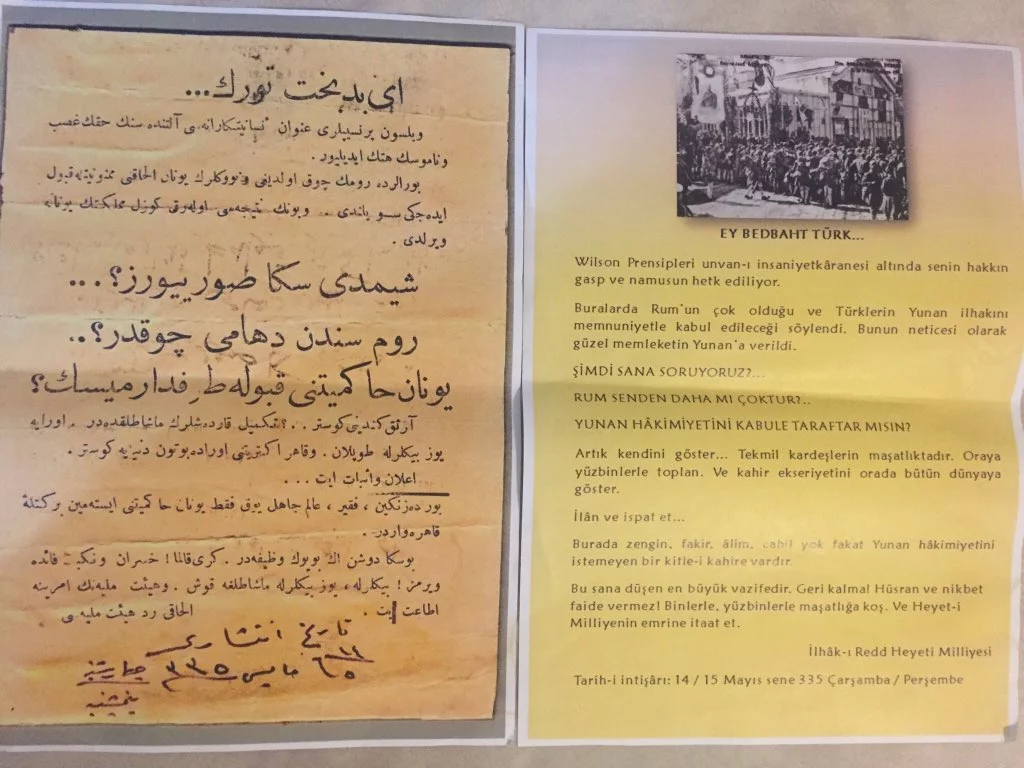 ای بدبخت تورك...
ویلسون پرنسیپلری عنوان انسانیتكارانه‌سی آلتنده سنك حقك غصب
وناموسك هتك ایدیلیور.
بورالرده رومك چوق اولدیغی وتوركلرك یونان الحاقی ممنونیتله قبول
ایده‌جكی سویلندی.. وبونك نتیجه‌سی اوله‌رق كوزل مملكتك یونانه
ویرلدی.
شیمدی سكا صورییورز؟...
روم سندن دهامی چوقدر؟..
یونان حاكمیتنی قبوله طرفدارمیسك؟
آرتق كندینی كوستر..؟ تكمیل قارده‌شلرك ماشاطلقده‌در. اورایه
یوز بیكلرله طوپلان. وقاهر اكثریتی اوراده بوتون دنیایه كوستر.
اعلان واثبات ایت...
بورده زنكین، فقیر، عالم جاهل یوق فقط یونان حاكمیتنی ایسته‌مین بر كتلهٔ
قاهره واردر.
بوسكا دوشن اك بویوك وظیفه‌در. كری قالما! خسران ونكبت فائده
ویرمز! بیكلرله، یوز بیكلرله ماشاطلغه قوش. وهیئت ملیه‌نك امرینه
اطاعت ایت. الحاقی رد هیئت ملیه‌سی
تاریخ انتشاری
١٤
١٥ مایس ٣٣٥ چهارشنبه
پنجشنبه
EY BEDBAHT TÜRK...
Wilson Prensipleri unvan-ı insaniyetkâranesi altında senin hakkın
gasp ve namusun hetk ediliyor.
Buralarda Rum'un çok olduğu ve Türklerin Yunan ilhakını
memnuniyetle kabul edileceği söylendi. Bunun neticesi olarak
güzel memleketin Yunan'a verildi.
ŞİMDİ SANA SORUYORUZ?...
RUM SENDEN DAHA MI ÇOKTUR?..
YUNAN HÂKİMİYETİNİ KABULE TARAFTAR MISIN?
Artık kendini göster... Tekmil kardeşlerin maşatlıktadır. Oraya
yüzbinlerle toplan. Ve kahir ekseriyetini orada bütün dünyaya
göster.
İlân ve ispat et...
Burada zengin, fakir, âlim, cahil yok fakat Yunan hâkimiyetini
istemeyen bir kitle-i kahire vardır.
Bu sana düşen en büyük vazifedir. Geri kalma! Hüsran ve nikbet
faide vermez! Binlerle, yüzbinlerle maşatlığa koş. Ve Heyet-i
Milliyenin emrine itaat et.
İlhâk-ı Redd Heyeti Milliyesi
Tarih-i intişârı: 14 / 15 Mayıs sene 335 Çarşamba / Perşembe